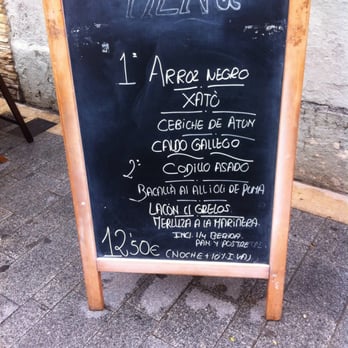 MENÚ
1º ARROZ NEGRO
XATÒ
CEBICHE DE ATUN
CALDO GALLEGO
2º CODILLO ASADO
BACALLÀ AL ALLIOLI DE POMA
LACÓN C/ GRELOS
MERLUZA A LA MARINERA
INCL. 1/4 BEBIDA
PAN Y POSTRE
12'50€ (NOCHE + 10% I.VA)